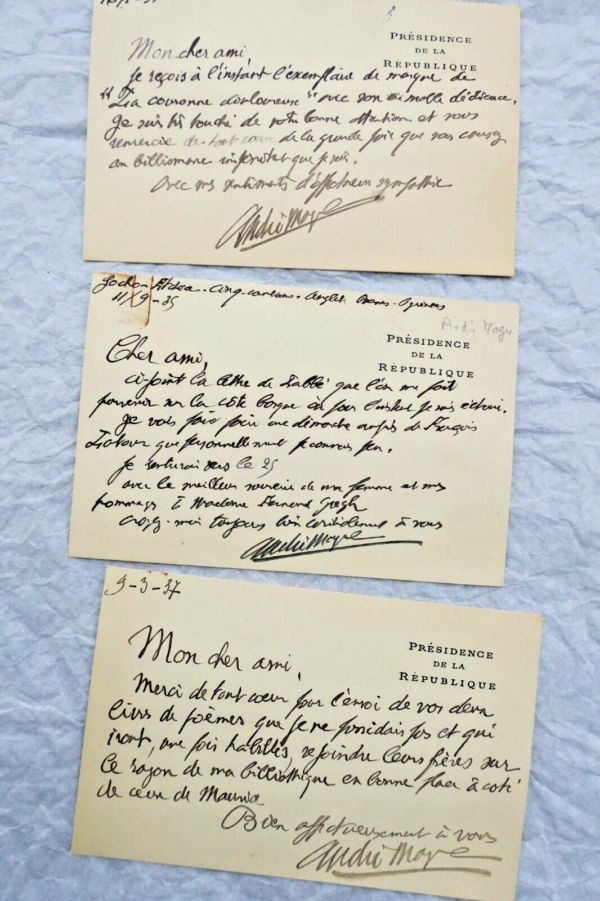 PRÉSIDENCE
DE LA
RÉPUBLIQUE
Mon cher ami,
Je reçois à l'instant l'exemplaire de marque de
"La couronne douloureuse" avec son aimable dédicace.
Je suis très touché de votre bonne attention et vous
remercie de tout cœur de la grande joie que vous causez
au bibliomane impénitent que je suis.
Avec mes sentiments d'affectueuse sympathie
André Magre
11/9-35
André Magre
PRÉSIDENCE
DE LA
RÉPUBLIQUE
Cher ami,
ci-joint la lettre de l'abbé que l'on me fait
parvenir sur la côte basque où pour l'instant je suis
Je vais faire faire une démarche auprès de François
que personnellement je connais peu.
Je rentrerai vers le 25
avec le meilleur souvenir de ma femme et mes
hommages à Madame Fernand Gregh
croyez-moi toujours bien cordialement à vous
André Magre
9-3-37
PRÉSIDENCE
DE LA
RÉPUBLIQUE
Mon cher ami,
Merci de tout cœur pour l'envoi de vos deux
livres de poèmes que je ne possédais pas et qui
iront, une fois habillés, rejoindre leurs frères sur
le rayon de ma bibliothèque en bonne place à coté
de ceux de Maurice
Bien affectueusement à vous
André Magre